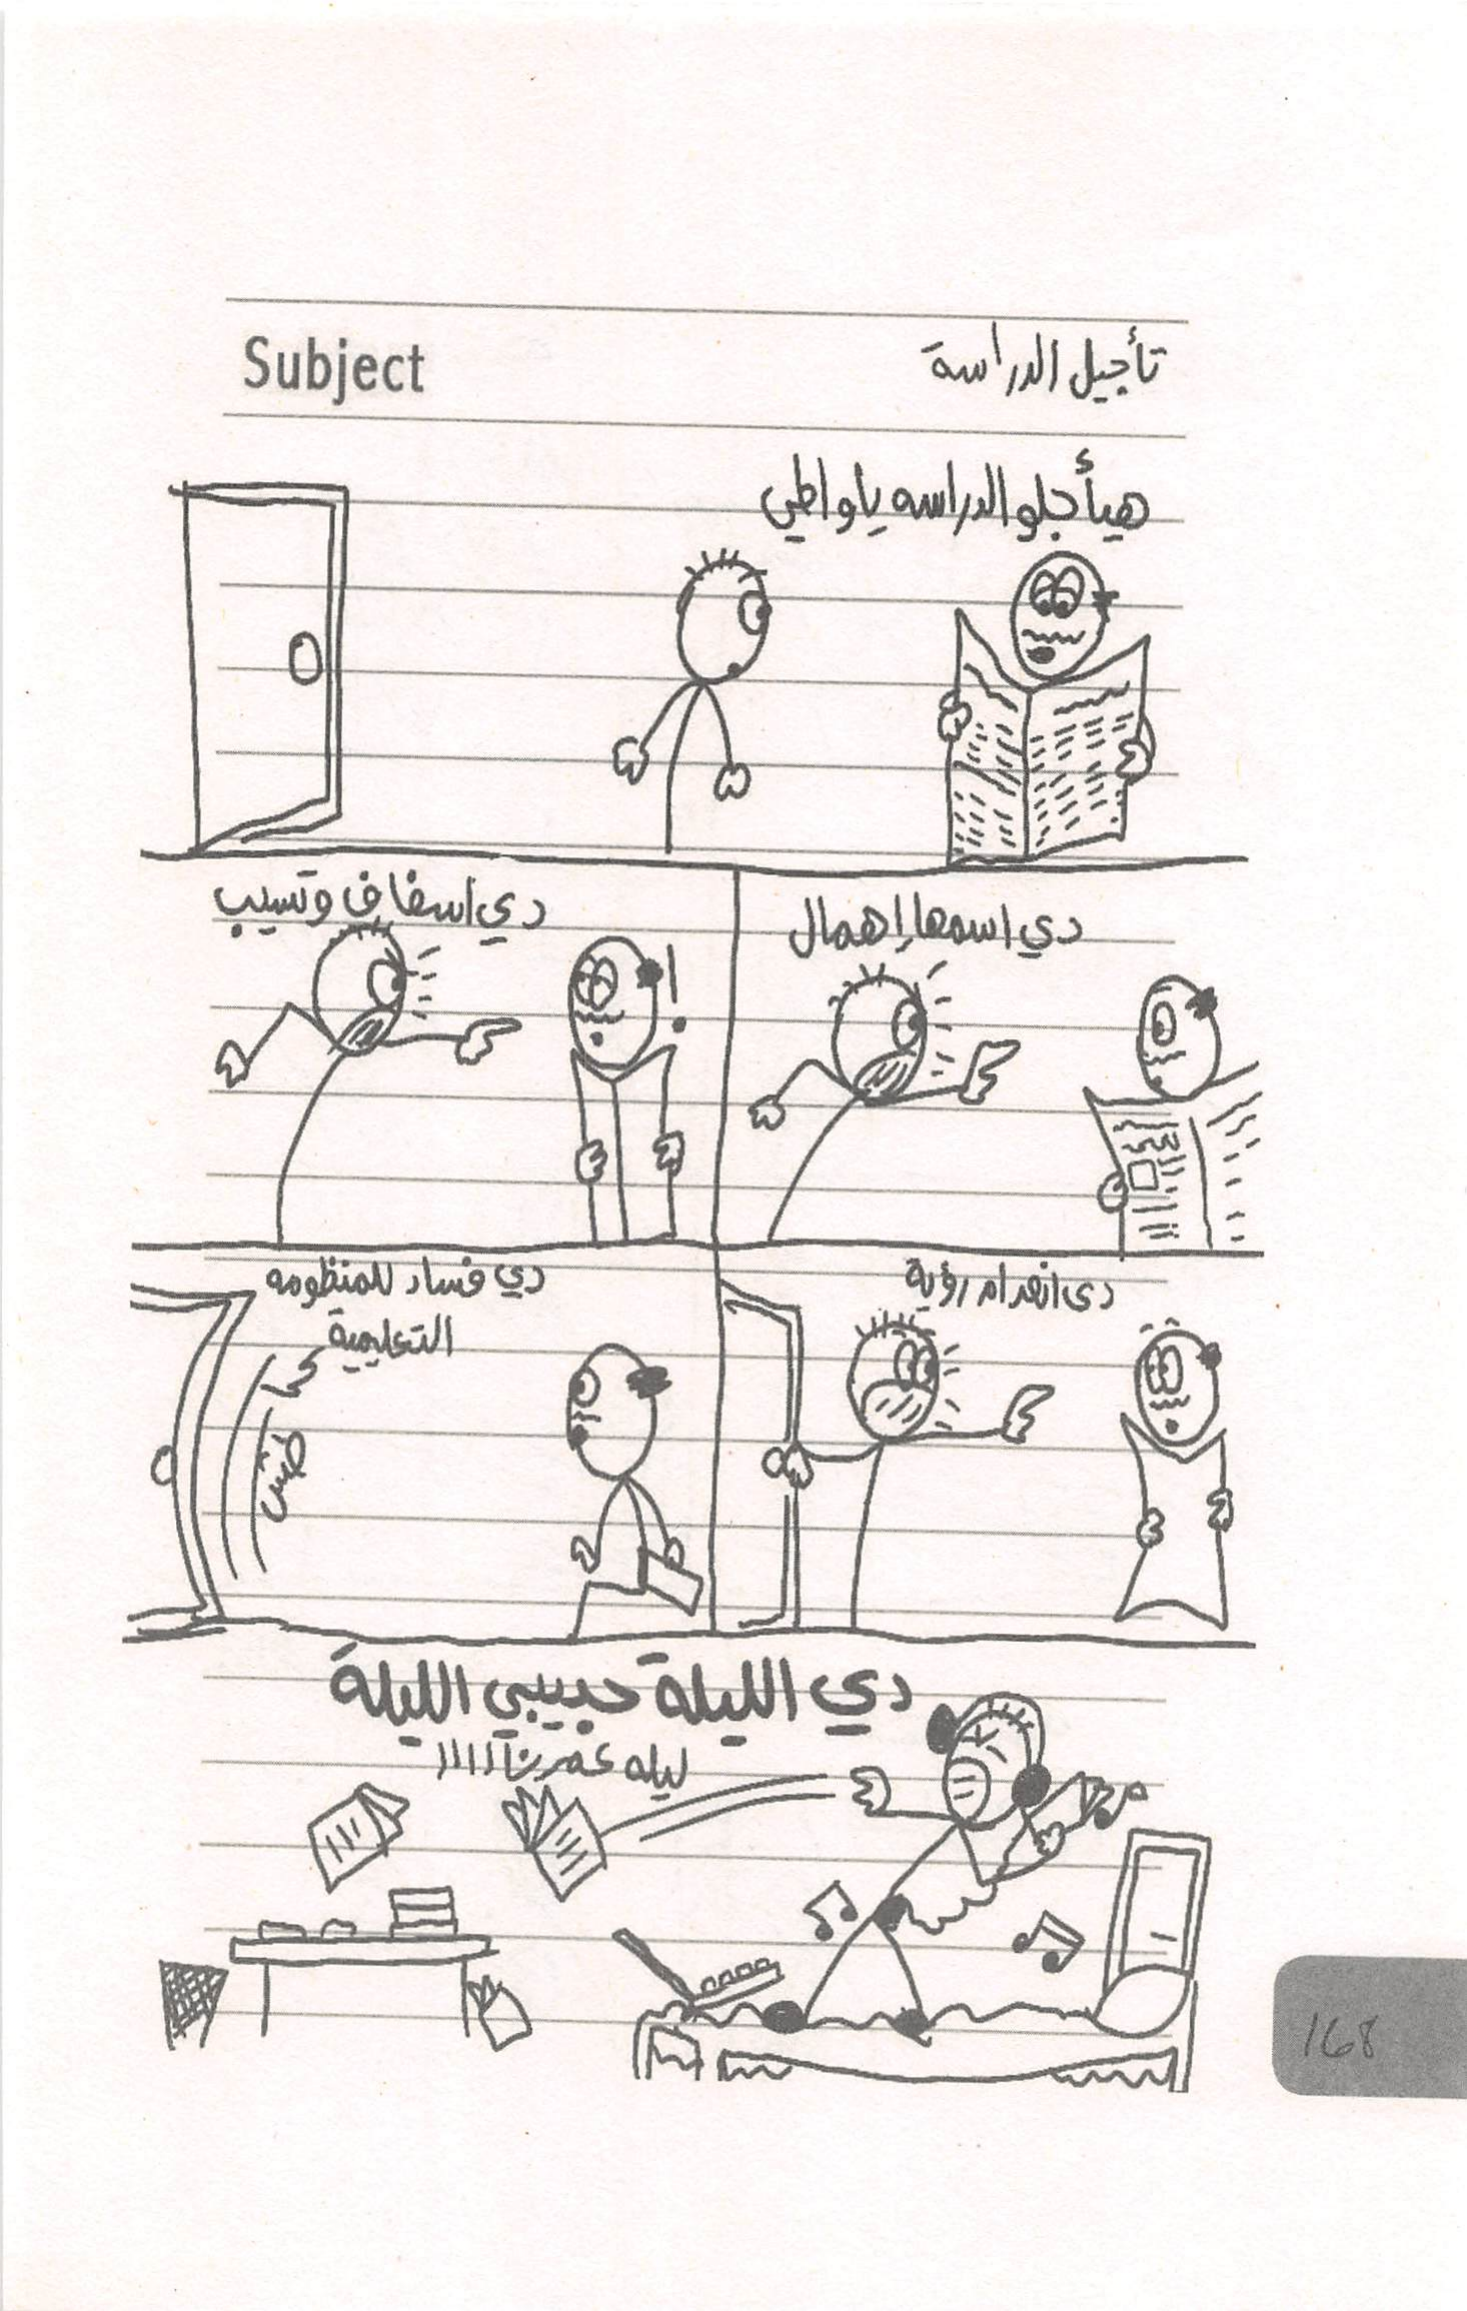 Subject
تأجيل الدراسة
هيأجلو الدراسه ياواطي
دي اسمها إهمال
دي اسفاف وتسيب
دى انعدام رؤية
دي فساد للمنظومه
التعليمية
دي الليلة حبيبي الليلة
ليله عمرنااااا
168